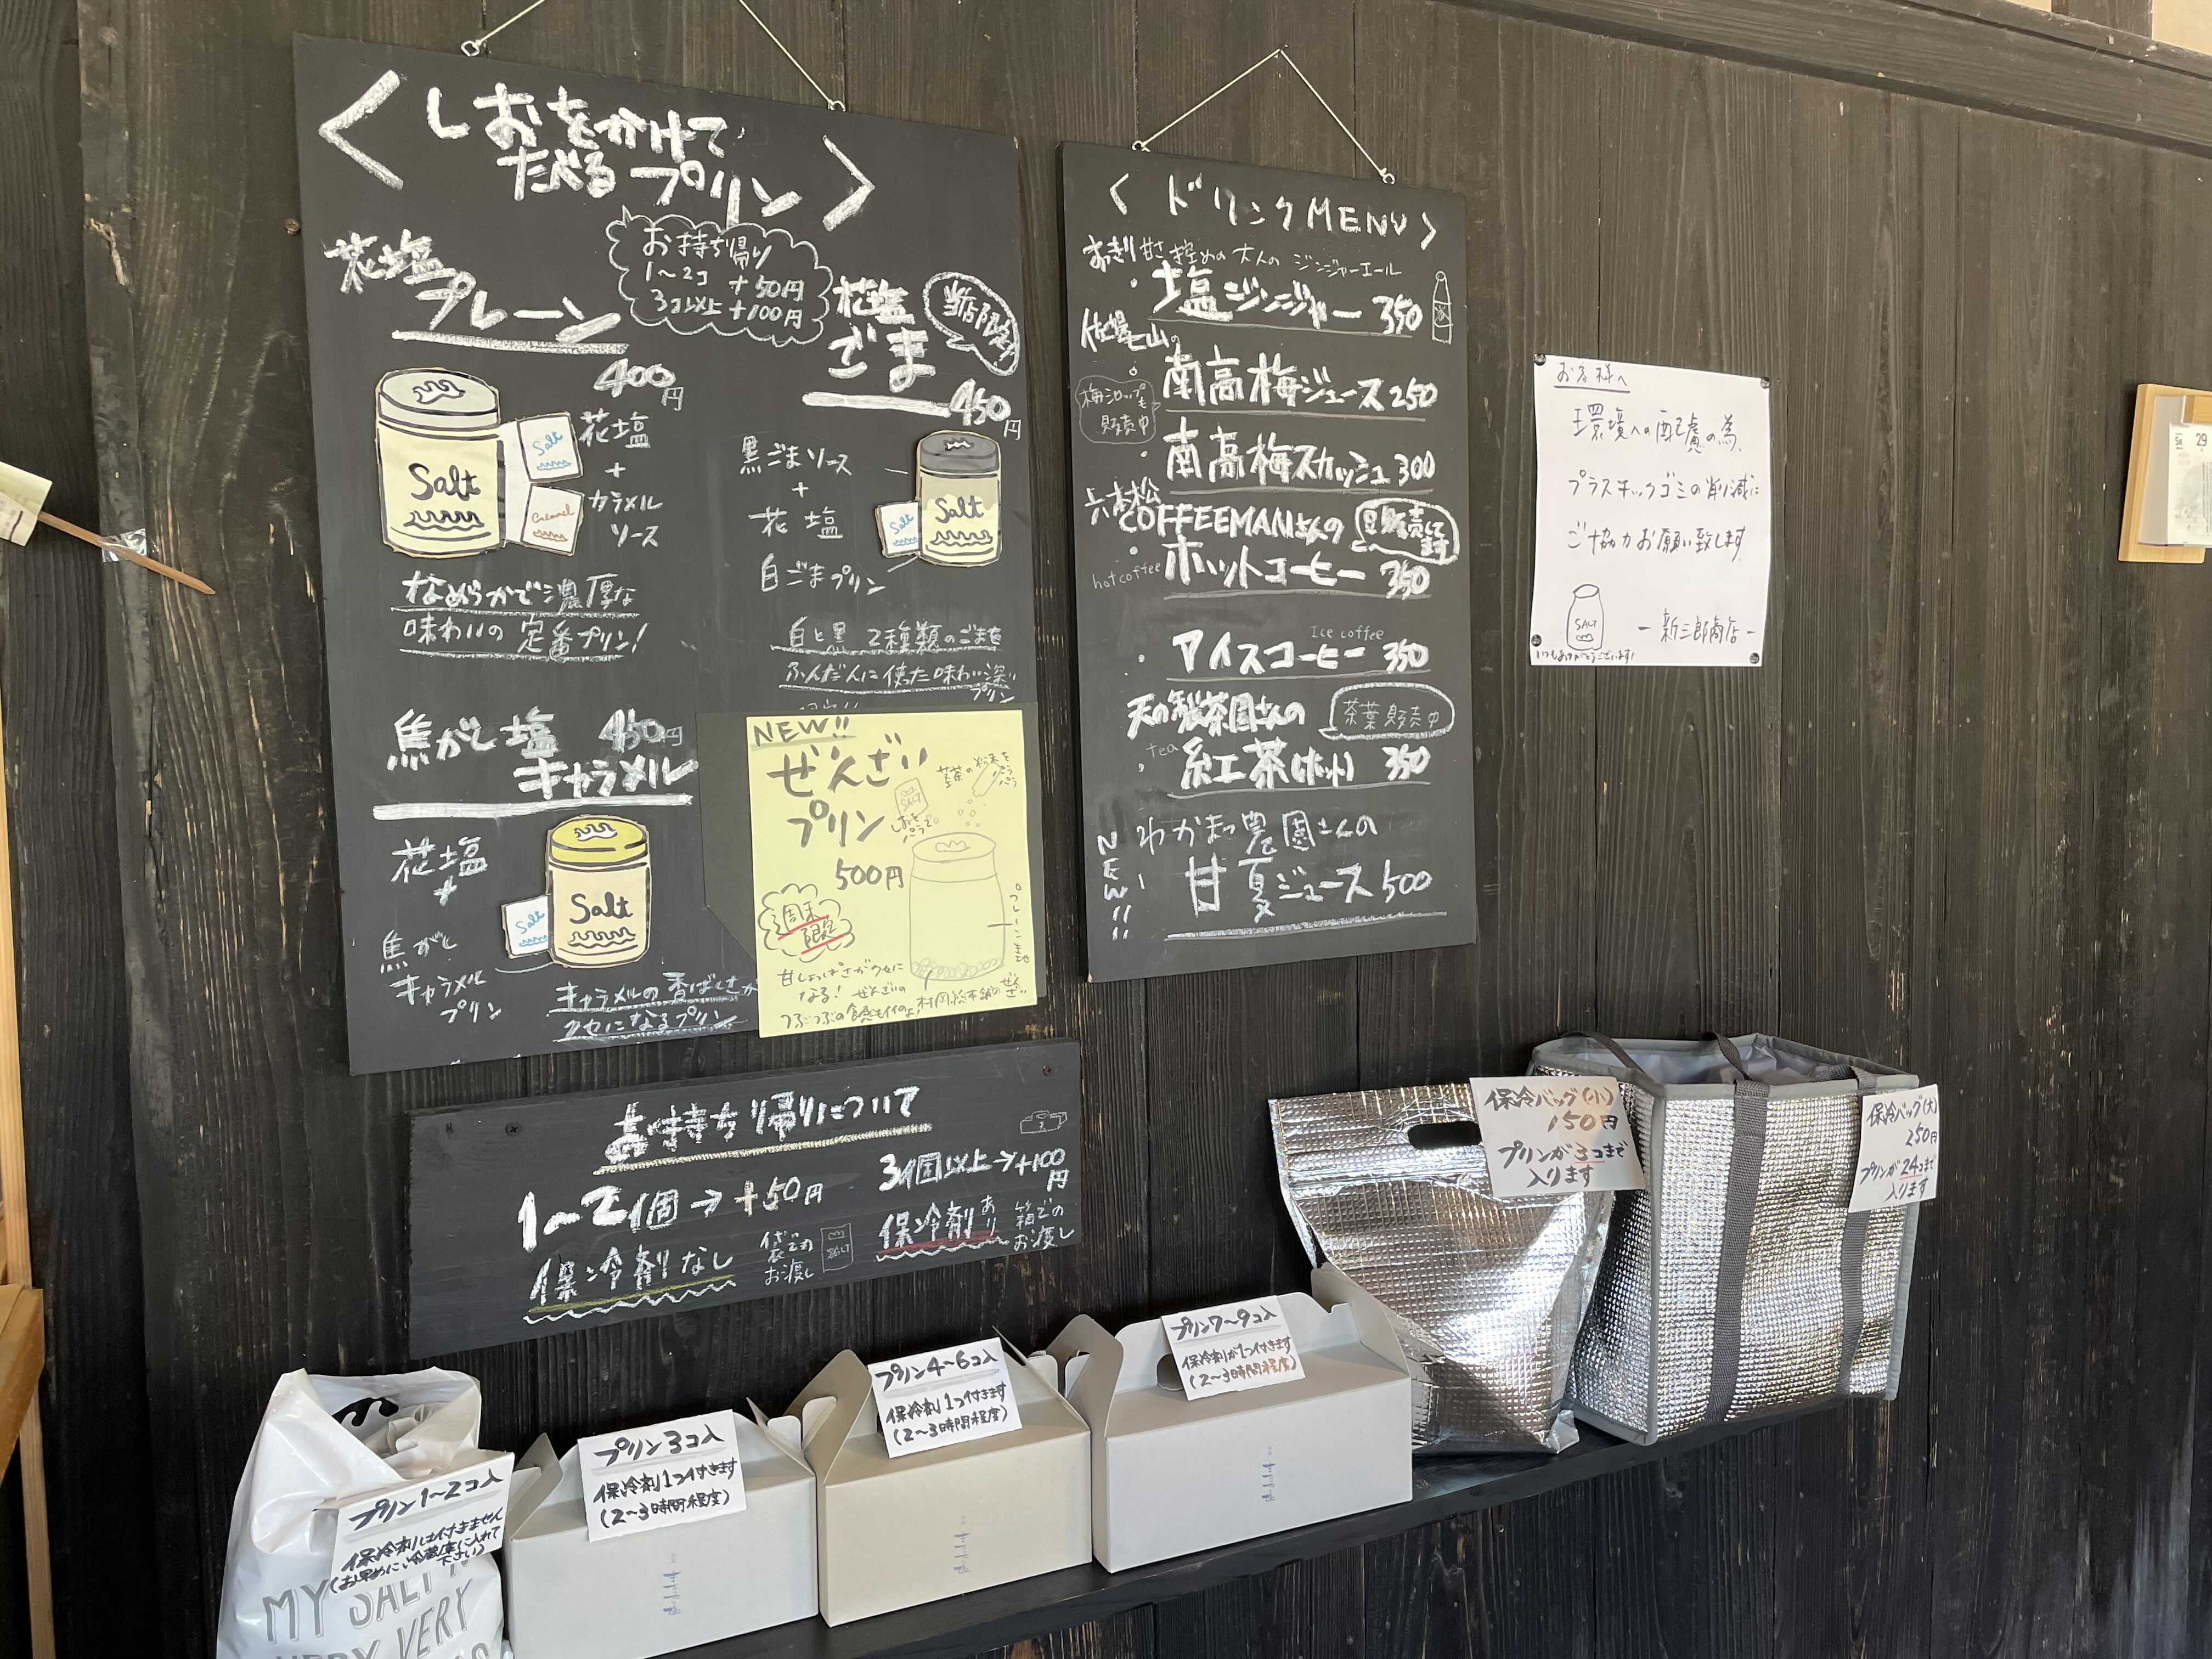 < しおをかけて
たべるプリン >
お持ち帰り
1〜2コ +50円
3コ以上 +100円
花塩
プレーン
400円
Salt
Salt
Caramel
花塩
+
カラメル
ソース
なめらかで濃厚な
味わいの定番プリン!
花塩
ごま
当店限定
450円
黒ごまソース
+
花塩
白ごまプリン
Salt
Salt
白と黒 2種類のごまを
ふんだんに使った味わい深い
プリン
焦がし塩
キャラメル
450円
花塩
+
焦がし
キャラメル
プリン
Salt
Salt
キャラメルの香ばしさが
クセになるプリン
NEW!!
ぜんざい
プリン
500円
週末
限定
SALT
しおを
パラパラ
プレーン生地
甘じょっぱさがクセに
なる! ぜんざいの
つぶつぶの食感もイイのよ
村岡総本舗のぜんざい
< ドリンクMENU >
あきり甘さ控めの大人のジンジャーエール
・塩ジンジャー 350
佐賀七山の
梅シロップも
販売中
南高梅ジュース 250
・南高梅スカッシュ 300
六本松
COFFEEMANさんの
豆販売して
ます
・ホットコーヒー 350
hot coffee
Ice coffee
・アイスコーヒー 350
天の製茶園さんの
茶葉販売中
tea
・紅茶(ホット) 350
NEW!!
わかまつ農園さんの
甘夏ジュース 500
お客様へ
環境への配慮の為、
プラスチックゴミの削減に
ご協力お願い致します
SALT
- 新三郎商店 -
いつもありがとうございます!
29
お持ち帰りについて
1〜2個→+50円
保冷剤なし
袋での
お渡し
SALT
3個以上→+100円
保冷剤あり
箱での
お渡し
保冷バッグ(小)
150円
プリンが3コまで
入ります
保冷バッグ(大)
250円
プリンが24コまで
入ります
プリン1〜2コ入
保冷剤は付きません
(お早めに冷蔵庫に入れて
下さい)
MY SALTY
VERY VERY
プリン3コ入
保冷剤1つ付きます
(2〜3時間程度)
プリン4〜6コ入
保冷剤1つ付きます
(2〜3時間程度)
プリン7〜9コ入
保冷剤が1つ付きます
(2〜3時間程度)